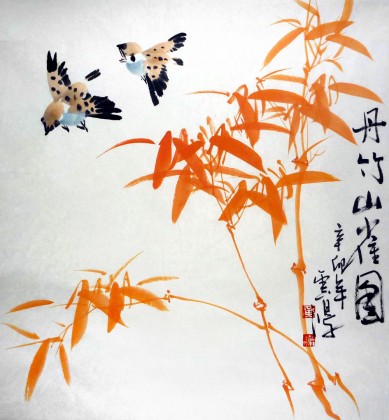 丹竹山雀图
辛卯年
雲